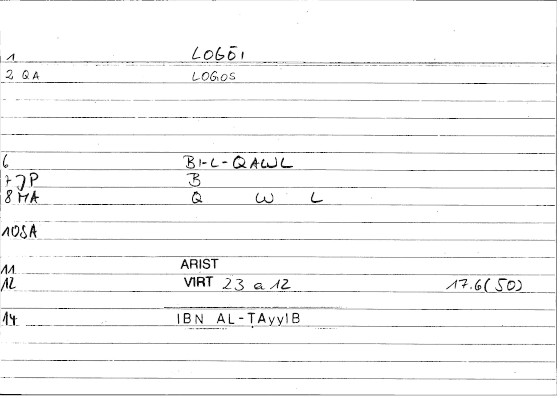 1 LOGŌI
2 QA LOGOS
6 BI-L-QAWL
7 JP B
8 MA Q W L
10 SA
11 ARIST
12 VIRT 23 a 12 17.6(50)
14 IBN AL-ṬAyyIB